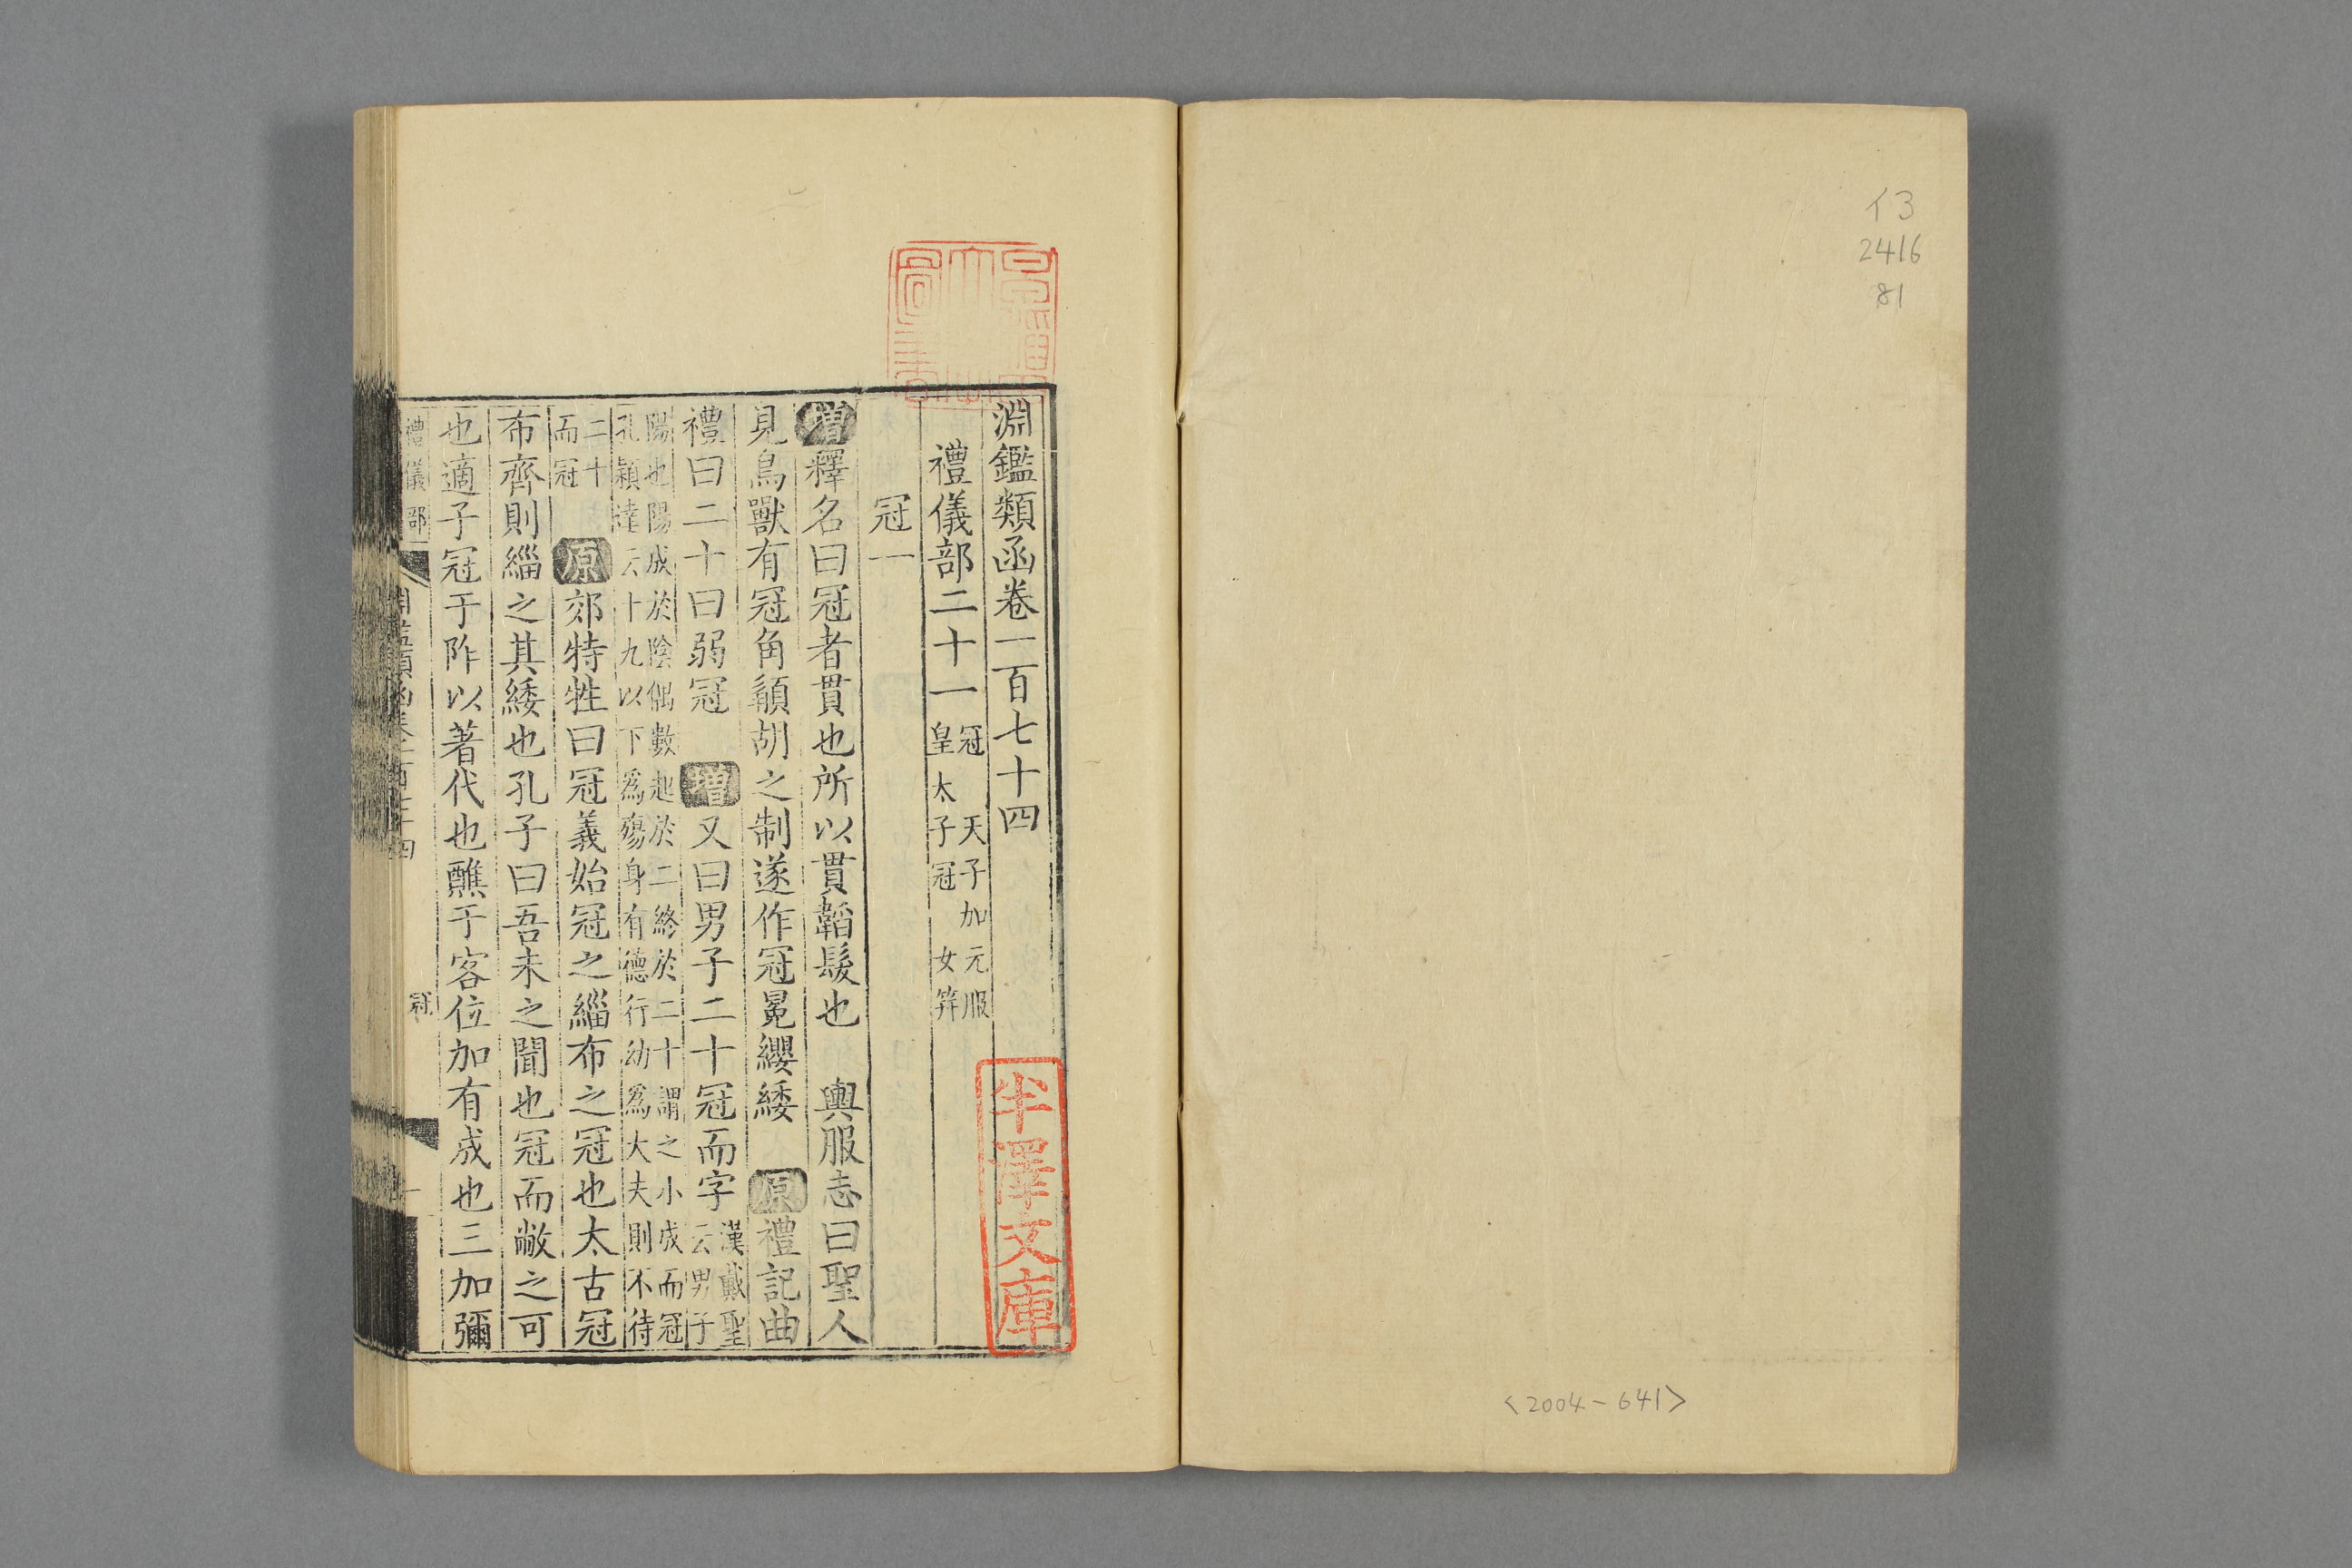 イ3
2416
81
<2004-641>
淵鑑類函卷一百七十四
禮儀部二十一 冠 天子加元服
皇太子冠 女笄
冠一
增釋名曰冠者貫也所以貫韜髮也 輿服志曰聖人
見鳥獸有冠角頿胡之制遂作冠冕纓緌 原禮記曲
禮曰二十曰弱冠 增又曰男子二十冠而字 漢戴聖
云男子
陽也陽成於陰偶數起於二終於二十謂之小成而冠
孔穎達云十九以下爲殤身有德行幼爲大夫則不待
二十
而冠
原郊特牲曰冠義始冠之緇布之冠也太古冠
布齊則緇之其緌也孔子曰吾未之聞也冠而敝之可
也適子冠于阼以著代也醮于客位加有成也三加彌
禮儀部
淵鑑類函卷一百七十四
冠
一
半澤文庫